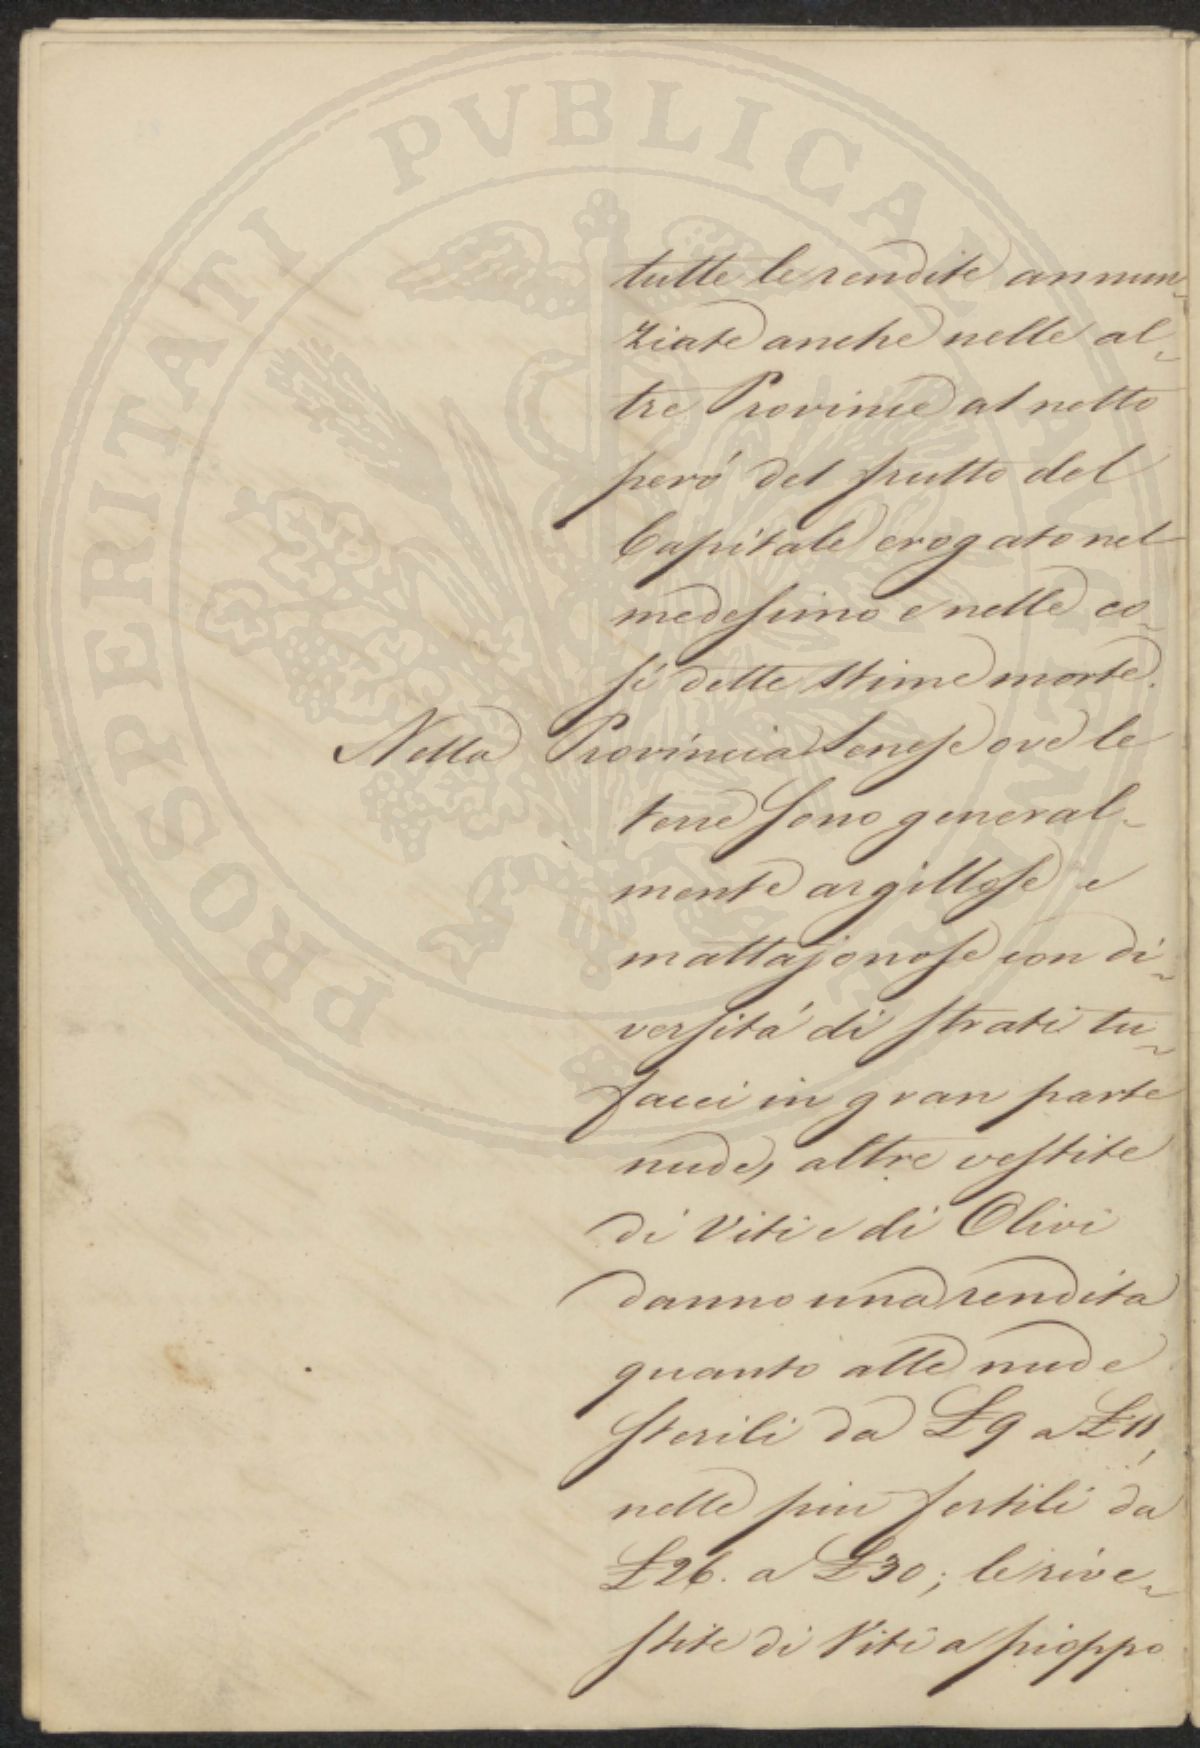 PROSPERITATI PVBLICAE AVGENDAE
tutte le rendite annun-
ziate anche nelle al-
tre Provincie al netto
peró del frutto del
Capitale erogato nel
medesimo e nelle co-
sí dette stime morte.
Nella Provincia Senese ove le
terre sono general-
mente argillose e
mattajonose con di-
versitá di strati tu-
facci in gran parte
nude, altre vestite
di Viti e di Olivi
danno una rendita
quanto alle nude
sterili da £9 a £11,
nelle piu fertili da
£26. a £30; le rive-
stite di Viti a pioppo